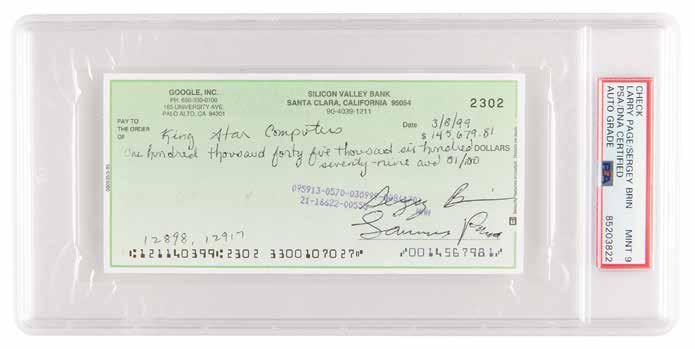 GOOGLE, INC.
PH. 650-330-0100
165 UNIVERSITY AVE.
PALO ALTO, CA 94301
SILICON VALLEY BANK
SANTA CLARA, CALIFORNIA 95054
90-4039-1211
2302
Date 3/8/99
PAY TO
THE ORDER
OF King Star Computers
$ 145,679.81
One hundred thousand forty five thousand six hundred DOLLARS
seventy-nine and 81/100
21-16622-00
Sergey Brin
Lawrence Page
12898, 12917
⑆121140399⑆2302 3300107027⑈ ⑈0014567981⑈
CHECK
LARRY PAGE/SERGEY BRIN
PSA/DNA CERTIFIED
AUTO GRADE
MINT 9
PSA
85203822